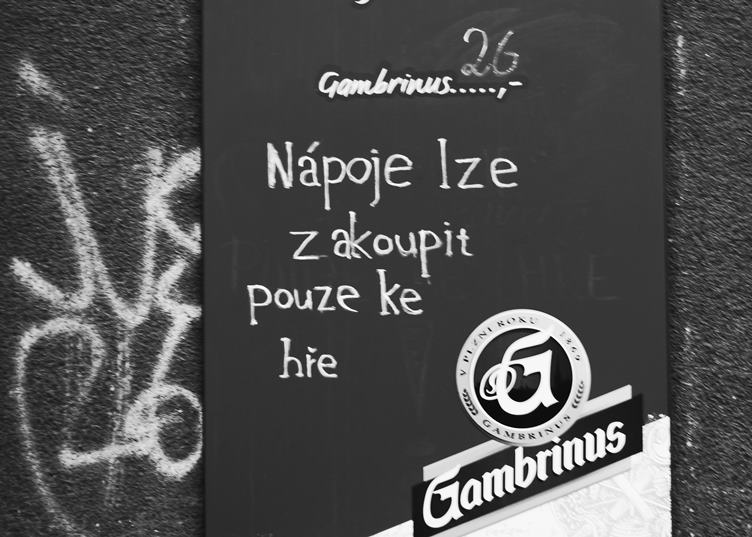 26
Gambrinus.....,-
Nápoje lze
zakoupit
pouze ke
hře
V PLZNI ROKU 1869
G
GAMBRINUS
Gambrinus